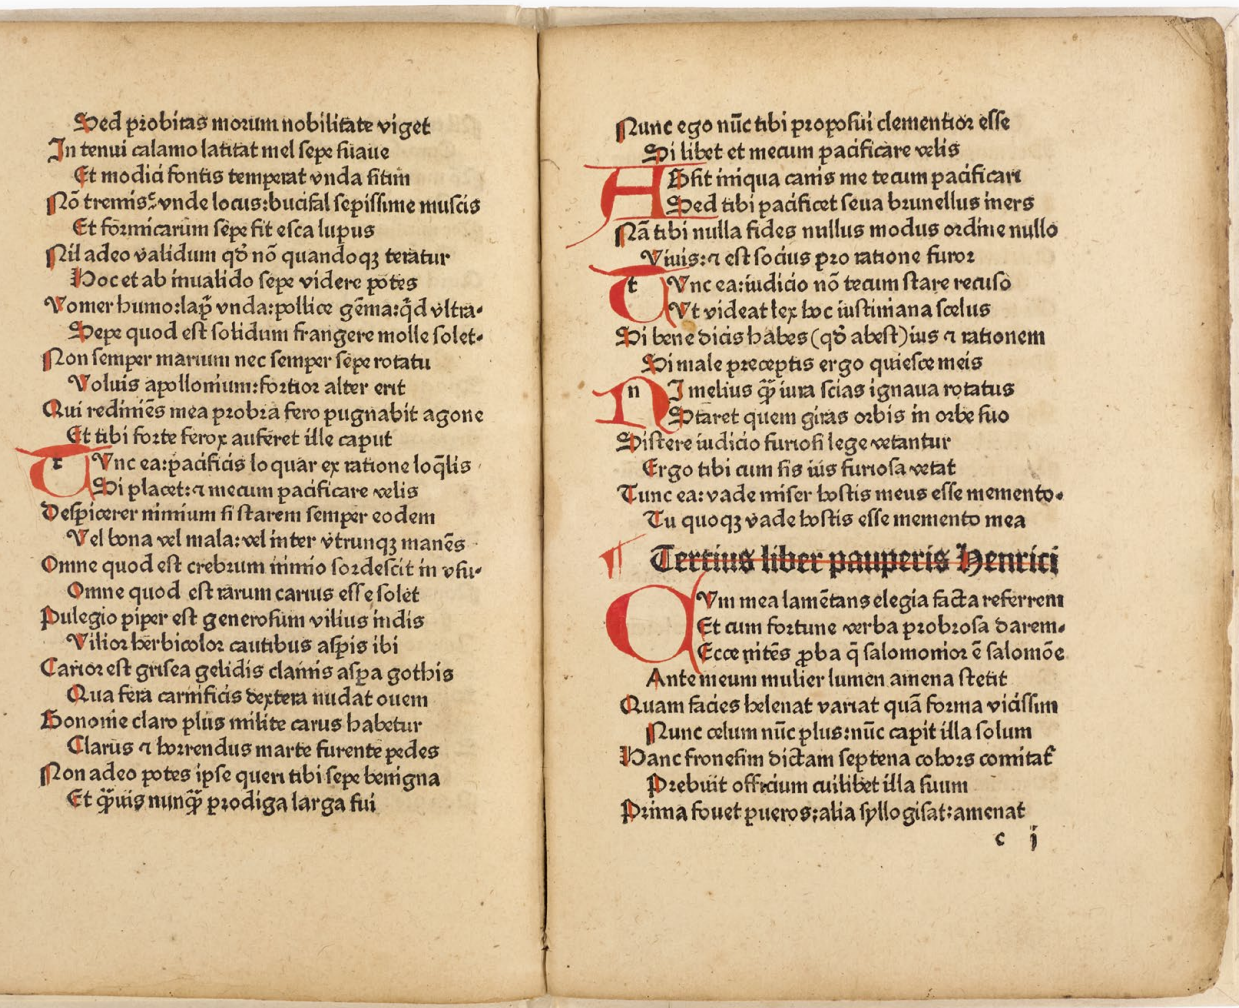 Sed probitas morum nobilitate viget
In tenui calamo latitat mel sepe suaue
Et modici fontis temperat vnda sitim
Nō tremis: vnde locus: bucifal sepissime muscis
Et formicarum sepe fit esca lupus
Nil adeo validum qđ nō quandoqꝫ teratur
Hoc et ab inualido sepe videre potes
Vomer humo: lapꝭ vnda: pollice gēma: qđ vltra.
Sepe quod est solidum frangere molle solet.
Non semper marum nec semper sepe rotatu
Voluis apollonium: fortior alter erit
Qui redimēs mea probra fero pugnabit agone
Et tibi forte ferox auferet ille caput
TVnc ea: pacificis loquar ex ratione loq̄lis
Si placet: ⁊ mecum pacificare velis
Despicerer nimium si starem semper eodem
Vel bona vel mala: vel inter vtrunqꝫ manēs
Omne quod est crebrum nimio sordescit in vsu.
Omne quod est rarum carius esse solet
Pulegio piper est generosum vilius indis
Vilior herbicolor cautibus aspis ibi
Carior est grisea gelidis clamis aspa gothis
Qua fera carnificis dextera nudat ouem
Bononie claro plus milite carus habetur
Clarus ⁊ horrendus marte furente pedes
Non adeo potes ipse queri tibi sepe benigna
Et q̄uis nunq̄ prodiga larga fui
Nunc ego nūc tibi proposui clementior esse
Si libet et mecum pacificare velis
ABsit iniqua canis me tecum pacificari
Sed tibi pacificet seua brunellus iners
Nā tibi nulla fides nullus modus ordine nullo
Viuis: ⁊ est socius pro ratione furor
TVnc ea: iudicio nō tecum stare recuso
Vt videat lex hoc iustiniana scelus
Si bene dicis habes (qđ abest) ius ⁊ rationem
Si male preceptis ergo quiesce meis
NI melius q̄ȝ iura scias ignaua rotatus
Staret quem giras orbis in orbe suo
Sistere iudicio furiosi lege vetantur
Ergo tibi cum sis ius furiosa vetat
Tunc ea: vade miser hostis meus esse memento.
Tu quoqꝫ vade hostis esse memento mea
¶ Tertius liber pauperis Henrici
QVm mea lamētans elegia facta referrem
Et cum fortune verba probrosa darem.
Ecce nitēs ꝓba q̄ salomonior ē salomōe
Ante meum mulier lumen amena stetit
Quam facies helenat variat quā forma vicissim
Nunc celum nūc plus: nūc capit illa solum
Hanc fronesim dictam septena cohors comitat
Prebuit officium cuilibet illa suum
Prima fouet pueros; alia syllogisat: amenat
c j